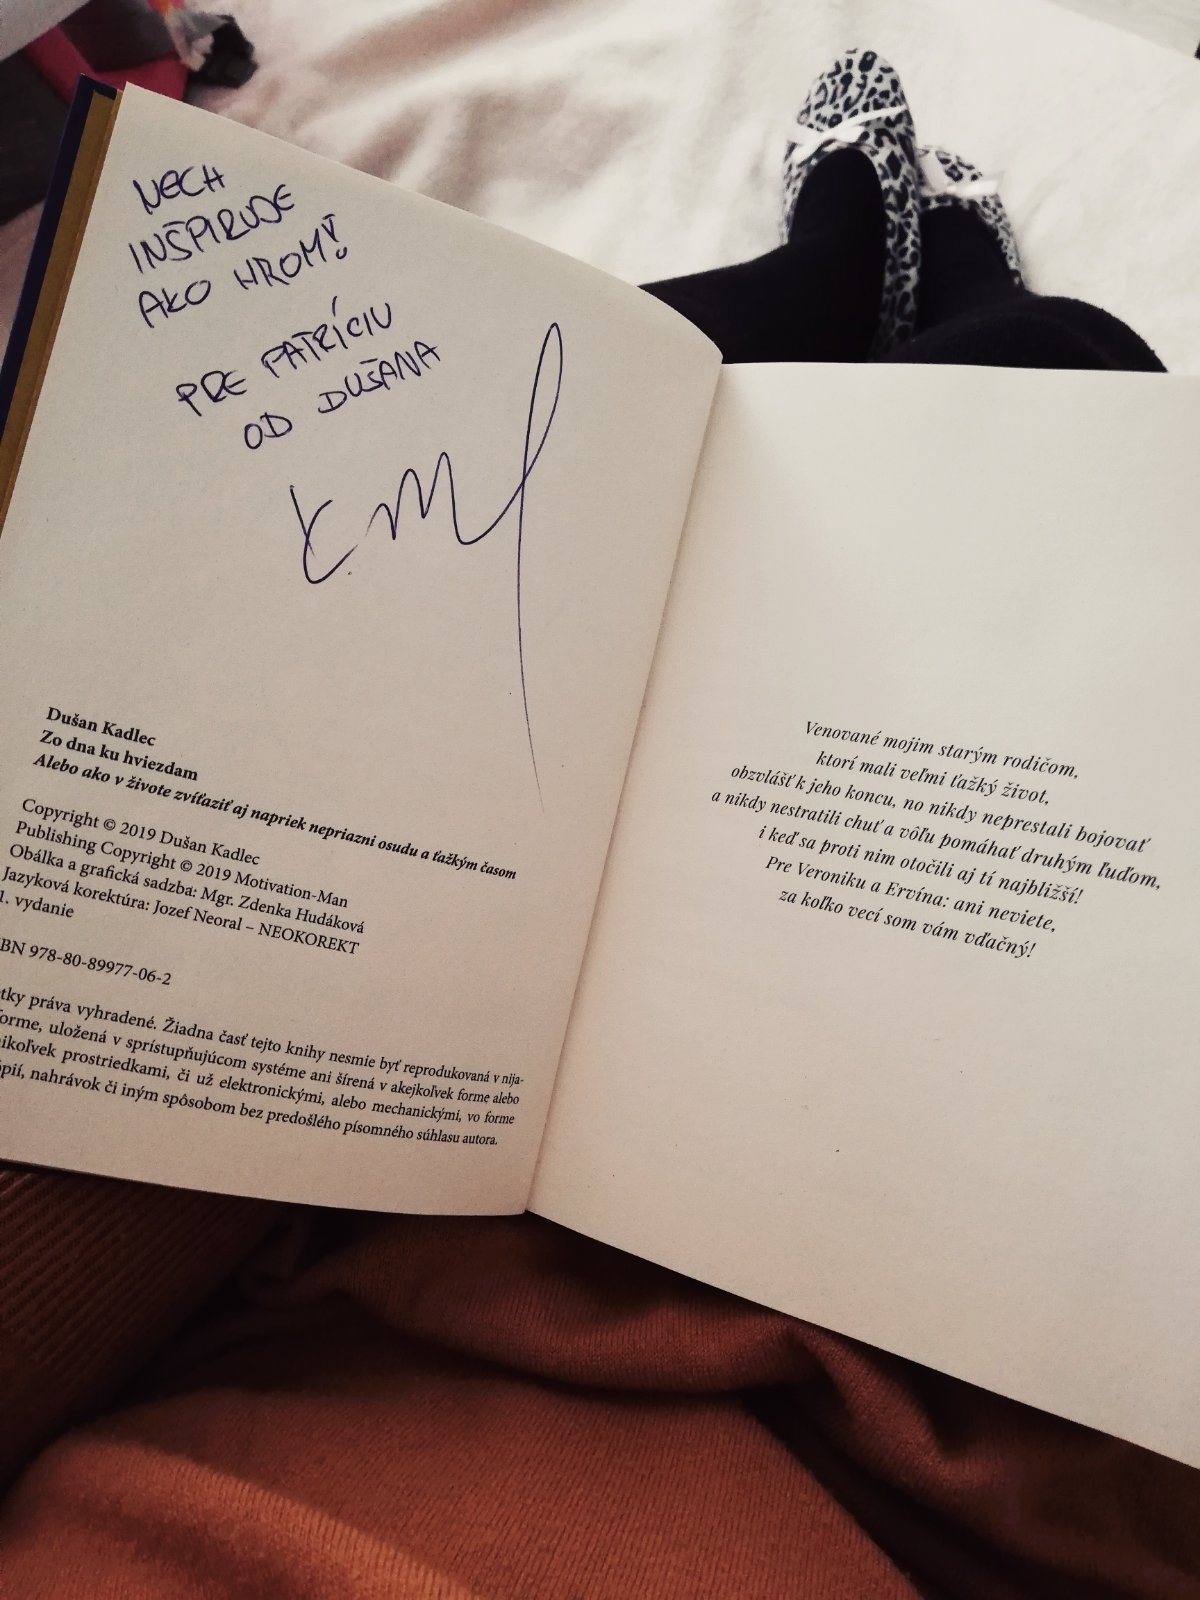 NECH
INŠPIRUJE
AKO HROM!
PRE PATRÍCIU
OD DUŠANA
Dušan Kadlec
Zo dna ku hviezdam
Alebo ako v živote zvíťaziť aj napriek nepriazni osudu a ťažkým časom
Copyright © 2019 Dušan Kadlec
Publishing Copyright © 2019 Motivation-Man
Obálka a grafická sadzba: Mgr. Zdenka Hudáková
Jazyková korektúra: Jozef Neoral – NEOKOREKT
1. vydanie
BN 978-80-89977-06-2
tky práva vyhradené. Žiadna časť tejto knihy nesmie byť reprodukovaná v nija-
forme, uložená v sprístupňujúcom systéme ani šírená v akejkoľvek forme alebo
ikoľvek prostriedkami, či už elektronickými, alebo mechanickými, vo forme
ópií, nahrávok či iným spôsobom bez predošlého písomného súhlasu autora.
Venované mojim starým rodičom,
ktorí mali veľmi ťažký život,
obzvlášť k jeho koncu, no nikdy neprestali bojovať
a nikdy nestratili chuť a vôľu pomáhať druhým ľuďom,
i keď sa proti nim otočili aj tí najbližší!
Pre Veroniku a Ervína: ani neviete,
za koľko vecí som vám vďačný!